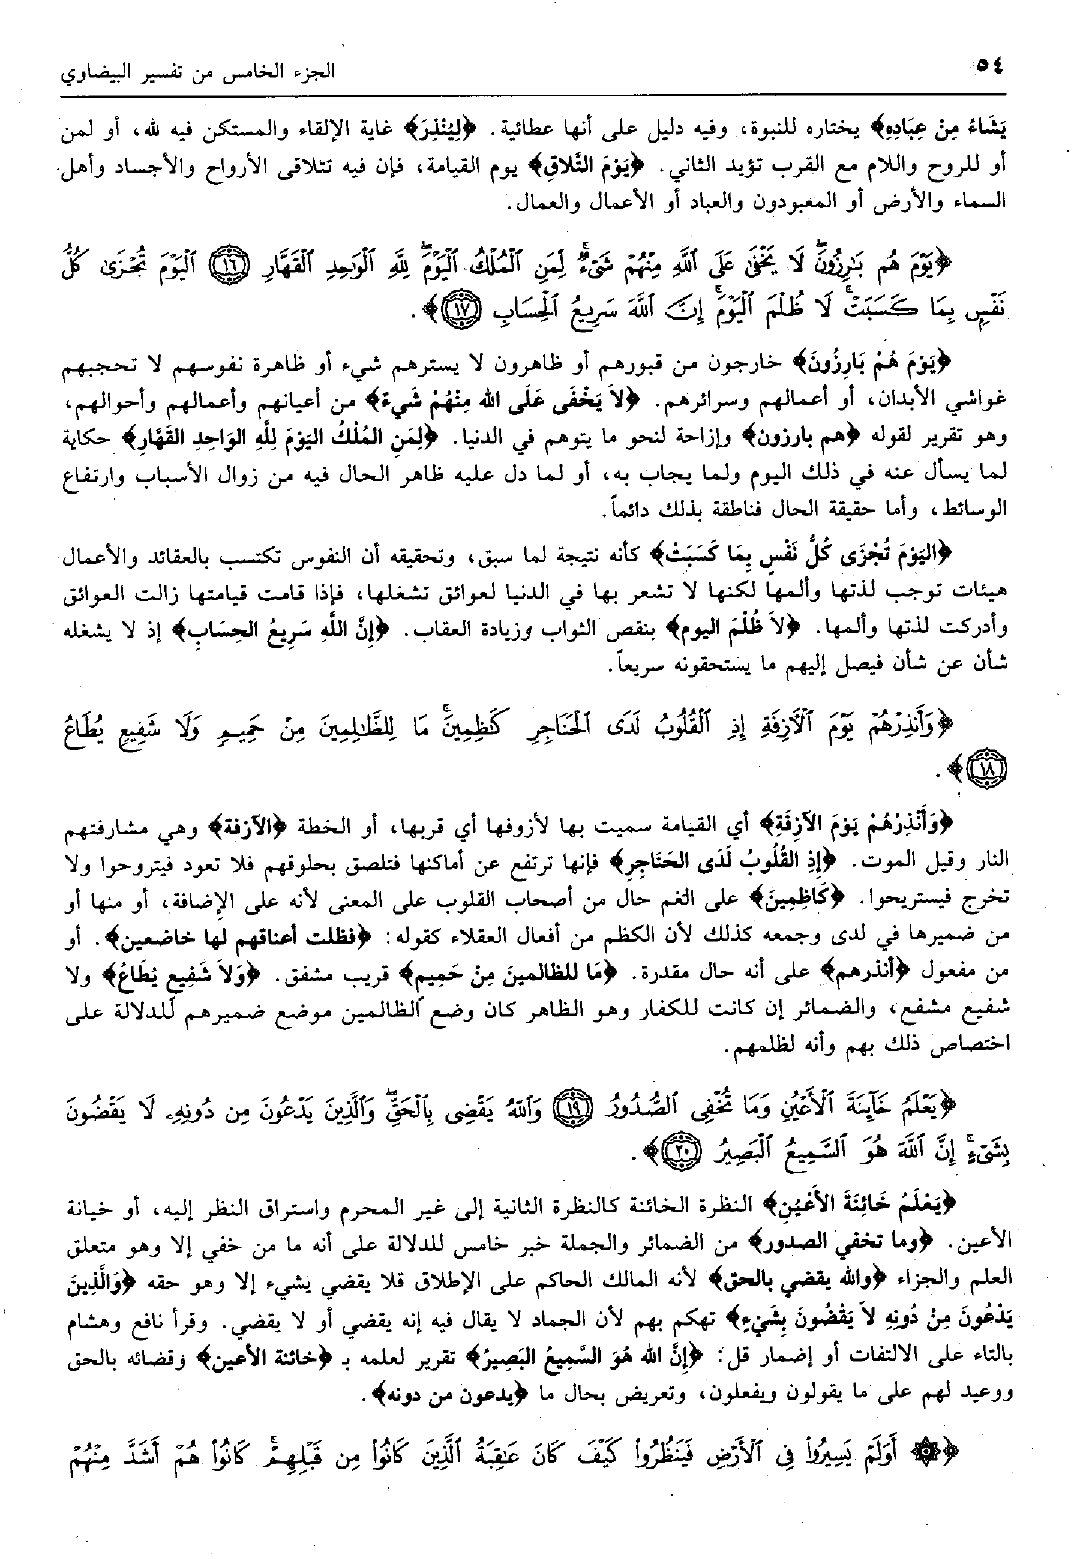 ٥٤
الجزء الخامس من تفسير البيضاوي
يَشَاءُ مِنْ عِبَادِهِ﴾ يختاره للنبوة، وفيه دليل على أنها عطائية. ﴿لِيُنْذِرَ﴾ غاية الإلقاء والمستكن فيه لله، أو لمن
أو للروح واللام مع القرب تؤيد الثاني. ﴿يَوْمَ التَّلاَقِ﴾ يوم القيامة، فإن فيه تتلاقى الأرواح والأجساد وأهل
السماء والأرض أو المعبودون والعباد أو الأعمال والعمال.
﴿يَوْمَ هُم بَٰرِزُونَۖ لَا يَخْفَىٰ عَلَى ٱللَّهِ مِنْهُمْ شَىْءٌۚ لِّمَنِ ٱلْمُلْكُ ٱلْيَوْمَۖ لِلَّهِ ٱلْوَٰحِدِ ٱلْقَهَّارِ ١٦ ٱلْيَوْمَ تُجْزَىٰ كُلُّ
نَفْسٍۭ بِمَا كَسَبَتْۚ لَا ظُلْمَ ٱلْيَوْمَۚ إِنَّ ٱللَّهَ سَرِيعُ ٱلْحِسَابِ ١٧﴾.
﴿يَوْمَ هُمْ بَارِزُونَ﴾ خارجون من قبورهم أو ظاهرون لا يسترهم شيء أو ظاهرة نفوسهم لا تحجبهم
غواشي الأبدان، أو أعمالهم وسرائرهم. ﴿لاَ يَخْفَى عَلَى الله مِنْهُمْ شَيءٌ﴾ من أعيانهم وأعمالهم وأحوالهم،
وهو تقرير لقوله ﴿هم بارزون﴾ وإزاحة لنحو ما يتوهم في الدنيا. ﴿لِمَنِ المُلْكُ اليَوْمَ لِلَّهِ الوَاحِدِ القَهَّارِ﴾ حكاية
لما يسأل عنه في ذلك اليوم ولما يجاب به، أو لما دل عليه ظاهر الحال فيه من زوال الأسباب وارتفاع
الوسائط، وأما حقيقة الحال فناطقة بذلك دائماً.
﴿اليَوْمَ تُجْزَى كُلُّ نَفْسٍ بِمَا كَسَبَتْ﴾ كأنه نتيجة لما سبق، وتحقيقه أن النفوس تكتسب بالعقائد والأعمال
هيئات توجب لذتها وألمها لكنها لا تشعر بها في الدنيا لعوائق تشغلها، فإذا قامت قيامتها زالت العوائق
وأدركت لذتها وألمها. ﴿لاَ ظُلْمَ اليوم﴾ بنقص الثواب وزيادة العقاب. ﴿إِنَّ اللَّهِ سَرِيعُ الحِسَابِ﴾ إذ لا يشغله
شأن عن شأن فيصل إليهم ما يستحقونه سريعاً.
﴿وَأَنذِرْهُمْ يَوْمَ ٱلْءَازِفَةِ إِذِ ٱلْقُلُوبُ لَدَى ٱلْحَنَاجِرِ كَٰظِمِينَۚ مَا لِلظَّٰلِمِينَ مِنْ حَمِيمٍ وَلَا شَفِيعٍ يُطَاعُ
١٨﴾.
﴿وَأَنْذِرْهُمْ يَوْمَ الآزِفَةِ﴾ أي القيامة سميت بها لأزوفها أي قربها، أو الخطة ﴿الآزفة﴾ وهي مشارفتهم
النار وقيل الموت. ﴿إِذِ القُلُوبُ لَدَى الحَنَاجِرِ﴾ فإنها ترتفع عن أماكنها فتلصق بحلوقهم فلا تعود فيتروحوا ولا
تخرج فيستريحوا. ﴿كَاظِمِينَ﴾ على الغم حال من أصحاب القلوب على المعنى لأنه على الإضافة، أو منها أو
من ضميرها في لدى وجمعه كذلك لأن الكظم من أفعال العقلاء كقوله: ﴿فظلت أعناقهم لها خاضعين﴾. أو
من مفعول ﴿أنذرهم﴾ على أنه حال مقدرة. ﴿مَا للظالمينَ مِنْ حَمِيمٍ﴾ قريب مشفق. ﴿وَلاَ شَفِيعٍ يُطَاعُ﴾ ولا
شفيع مشفع، والضمائر إن كانت للكفار وهو الظاهر كان وضع الظالمين موضع ضميرهم للدلالة على
اختصاص ذلك بهم وأنه لظلمهم.
﴿يَعْلَمُ خَآئِنَةَ ٱلْأَعْيُنِ وَمَا تُخْفِى ٱلصُّدُورُ ١٩ وَٱللَّهُ يَقْضِى بِٱلْحَقِّۖ وَٱلَّذِينَ يَدْعُونَ مِن دُونِهِۦ لَا يَقْضُونَ
بِشَىْءٍۗ إِنَّ ٱللَّهَ هُوَ ٱلسَّمِيعُ ٱلْبَصِيرُ ٢٠﴾.
﴿يَعْلَمُ خَائِنَةَ الأَعْيُنِ﴾ النظرة الخائنة كالنظرة الثانية إلى غير المحرم واستراق النظر إليه، أو خيانة
الأعين. ﴿وما تخفي الصدور﴾ من الضمائر والجملة خبر خامس للدلالة على أنه ما من خفي إلا وهو متعلق
العلم والجزاء ﴿والله يقضي بالحق﴾ لأنه المالك الحاكم على الإطلاق فلا يقضي بشيء إلا وهو حقه ﴿وَالَّذِينَ
يَدْعُونَ مِنْ دُونِهِ لاَ يَقْضُونَ بِشَيْءٍ﴾ تهكم بهم لأن الجماد لا يقال فيه إنه يقضي أو لا يقضي. وقرأ نافع وهشام
بالتاء على الالتفات أو إضمار قل: ﴿إِنَّ الله هُوَ السَّمِيعُ البَصِيرُ﴾ تقرير لعلمه بـ ﴿خائنة الأعين﴾ وقضائه بالحق
ووعيد لهم على ما يقولون ويفعلون، وتعريض بحال ما ﴿يدعون من دونه﴾.
﴿۞ أَوَلَمْ يَسِيرُوا۟ فِى ٱلْأَرْضِ فَيَنظُرُوا۟ كَيْفَ كَانَ عَٰقِبَةُ ٱلَّذِينَ كَانُوا۟ مِن قَبْلِهِمْۚ كَانُوا۟ هُمْ أَشَدَّ مِنْهُمْ